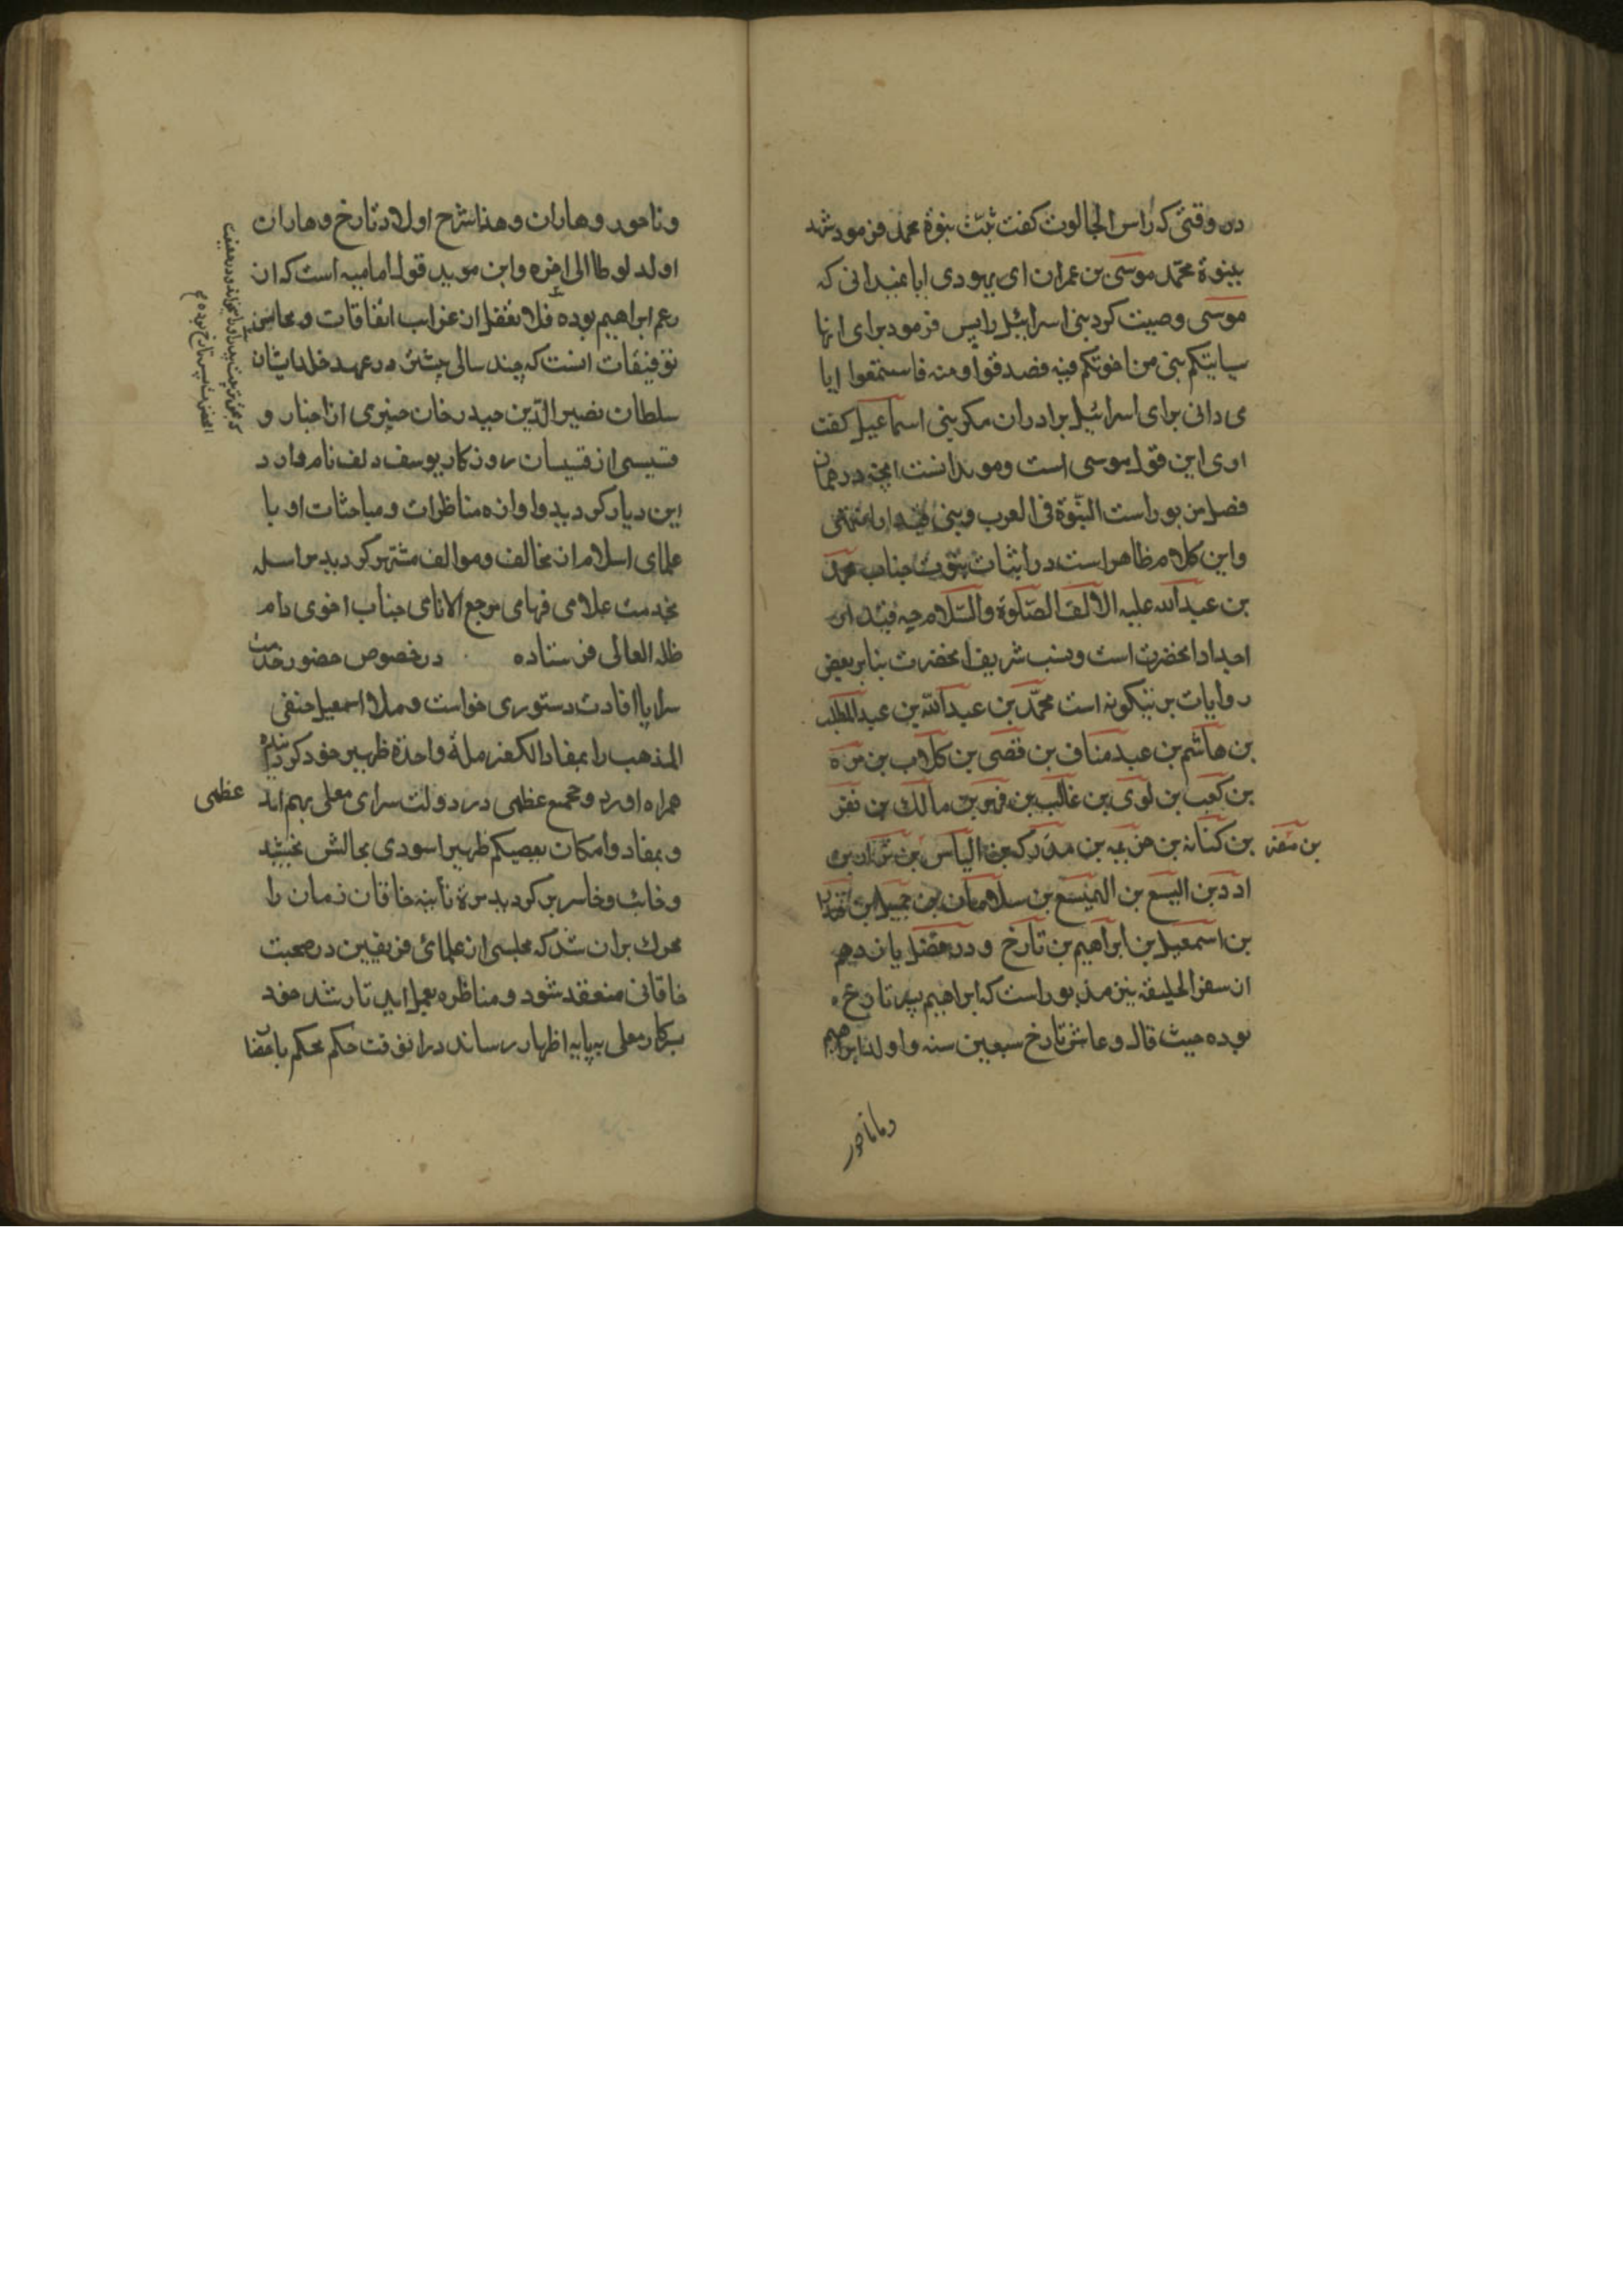 در وقتی که راس الجالوت کفت ثبت نبوة محمد فرمود شهد
بنبوة محمد موسی بن عمران ای یهودی ایا نمیدانی که
موسی وصیت کرد بنی اسرائیل را پس فرمود برای انها
سیاتیکم نبی من اخوتکم فیه فصدقوا ومنه فاستمعوا ایا
می دانی برای اسرائیل برادران مکر بنی اسماعیل کفت
اری این قول موسی است وموید انست انچه در همان
فصل مزبور است النبوة فی العرب وبنی
واین کلام ظاهر است در اثبات نبوت جناب محمد
بن عبدالله علیه الالف الصلوة والسلام چه قیدار
اجداد انحضرت است ونسب شریف انحضرت بنابر بعض
روایات بر نیکونه است محمد بن عبدالله بن عبدالمطلب
بن هاشم بن عبد مناف بن قصی بن کلاب بن مره
بن کعب بن لوی بن غالب بن فهر بن مالک بن نضر
بن کنانه بن خزیمه بن مدرکه بن الیاس بن نزار بن
ادد بن الیسع بن الهمیسع بن سلامان بن جمیل بن قیدار
بن اسمعیل بن ابراهیم بن تارخ ودر فصل یازدهم
از سفر الخلیقه نیز مذبور است که ابراهیم پسر تارخ
بوده حیث قال وعاش تارخ سبعین سنه واولد ابراهیم
وناحور
وناحور وهاران وهذا شرح اولاد تارخ وهاران
اولد لوطا الی اخره واین موید قول امامیه است که ازر
عم ابراهیم بوده فلا تغفل از غرایب اتفاقات ومحاسن
توفیقات انست که چند سالی پیشتر در عهد خلد اشیان
سلطان نصیر الدین حیدر خان حبری از احبار و
قسیسی از قسیسان روزکار یوسف دلف نام وارد
این دیار کردید واوازه مناظرات ومباحثات او با
علمای اسلام از مخالف وموالف مشتهر کردید مراسله
بخدمت علامی فهامی مرجع الانامی جناب اخوی دام
ظله العالی فرستاده در خصوص حضور خدمت
سراپا افادت دستوری خواست وملا اسمعیل حنفی
المذهب را بمفاد الکفر ملة واحدة ظهیر خود کردانیده
همراه اورد ومجمع عظمی در دولت سرای معلی بهم امد
عظمی
وبمفاد وامکان بعضکم ظهیرا سودی بحالش نبخشید
وخائب وخاسر برکردید مرة ثانیه خاقان زمان را
محرک بران شد که مجلسی از علمای فریقین در صحبت
خاقانی منعقد شود ومناظره بعمل اید تا رشد خود
بسرکار معلی به پایه اظهار رساند درانوقت حکم محکم بامضا